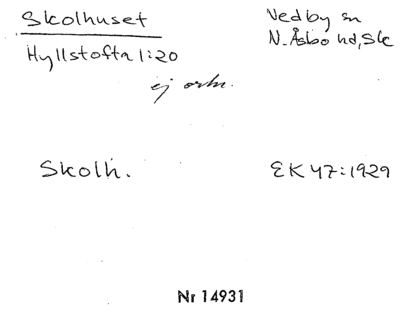 Skolhuset
Vedby sn
Hyllstofta 1:20
N. Åsbo hd, Sk
ej ortn.
Skolh.
EK 47:1929
Nr 14931